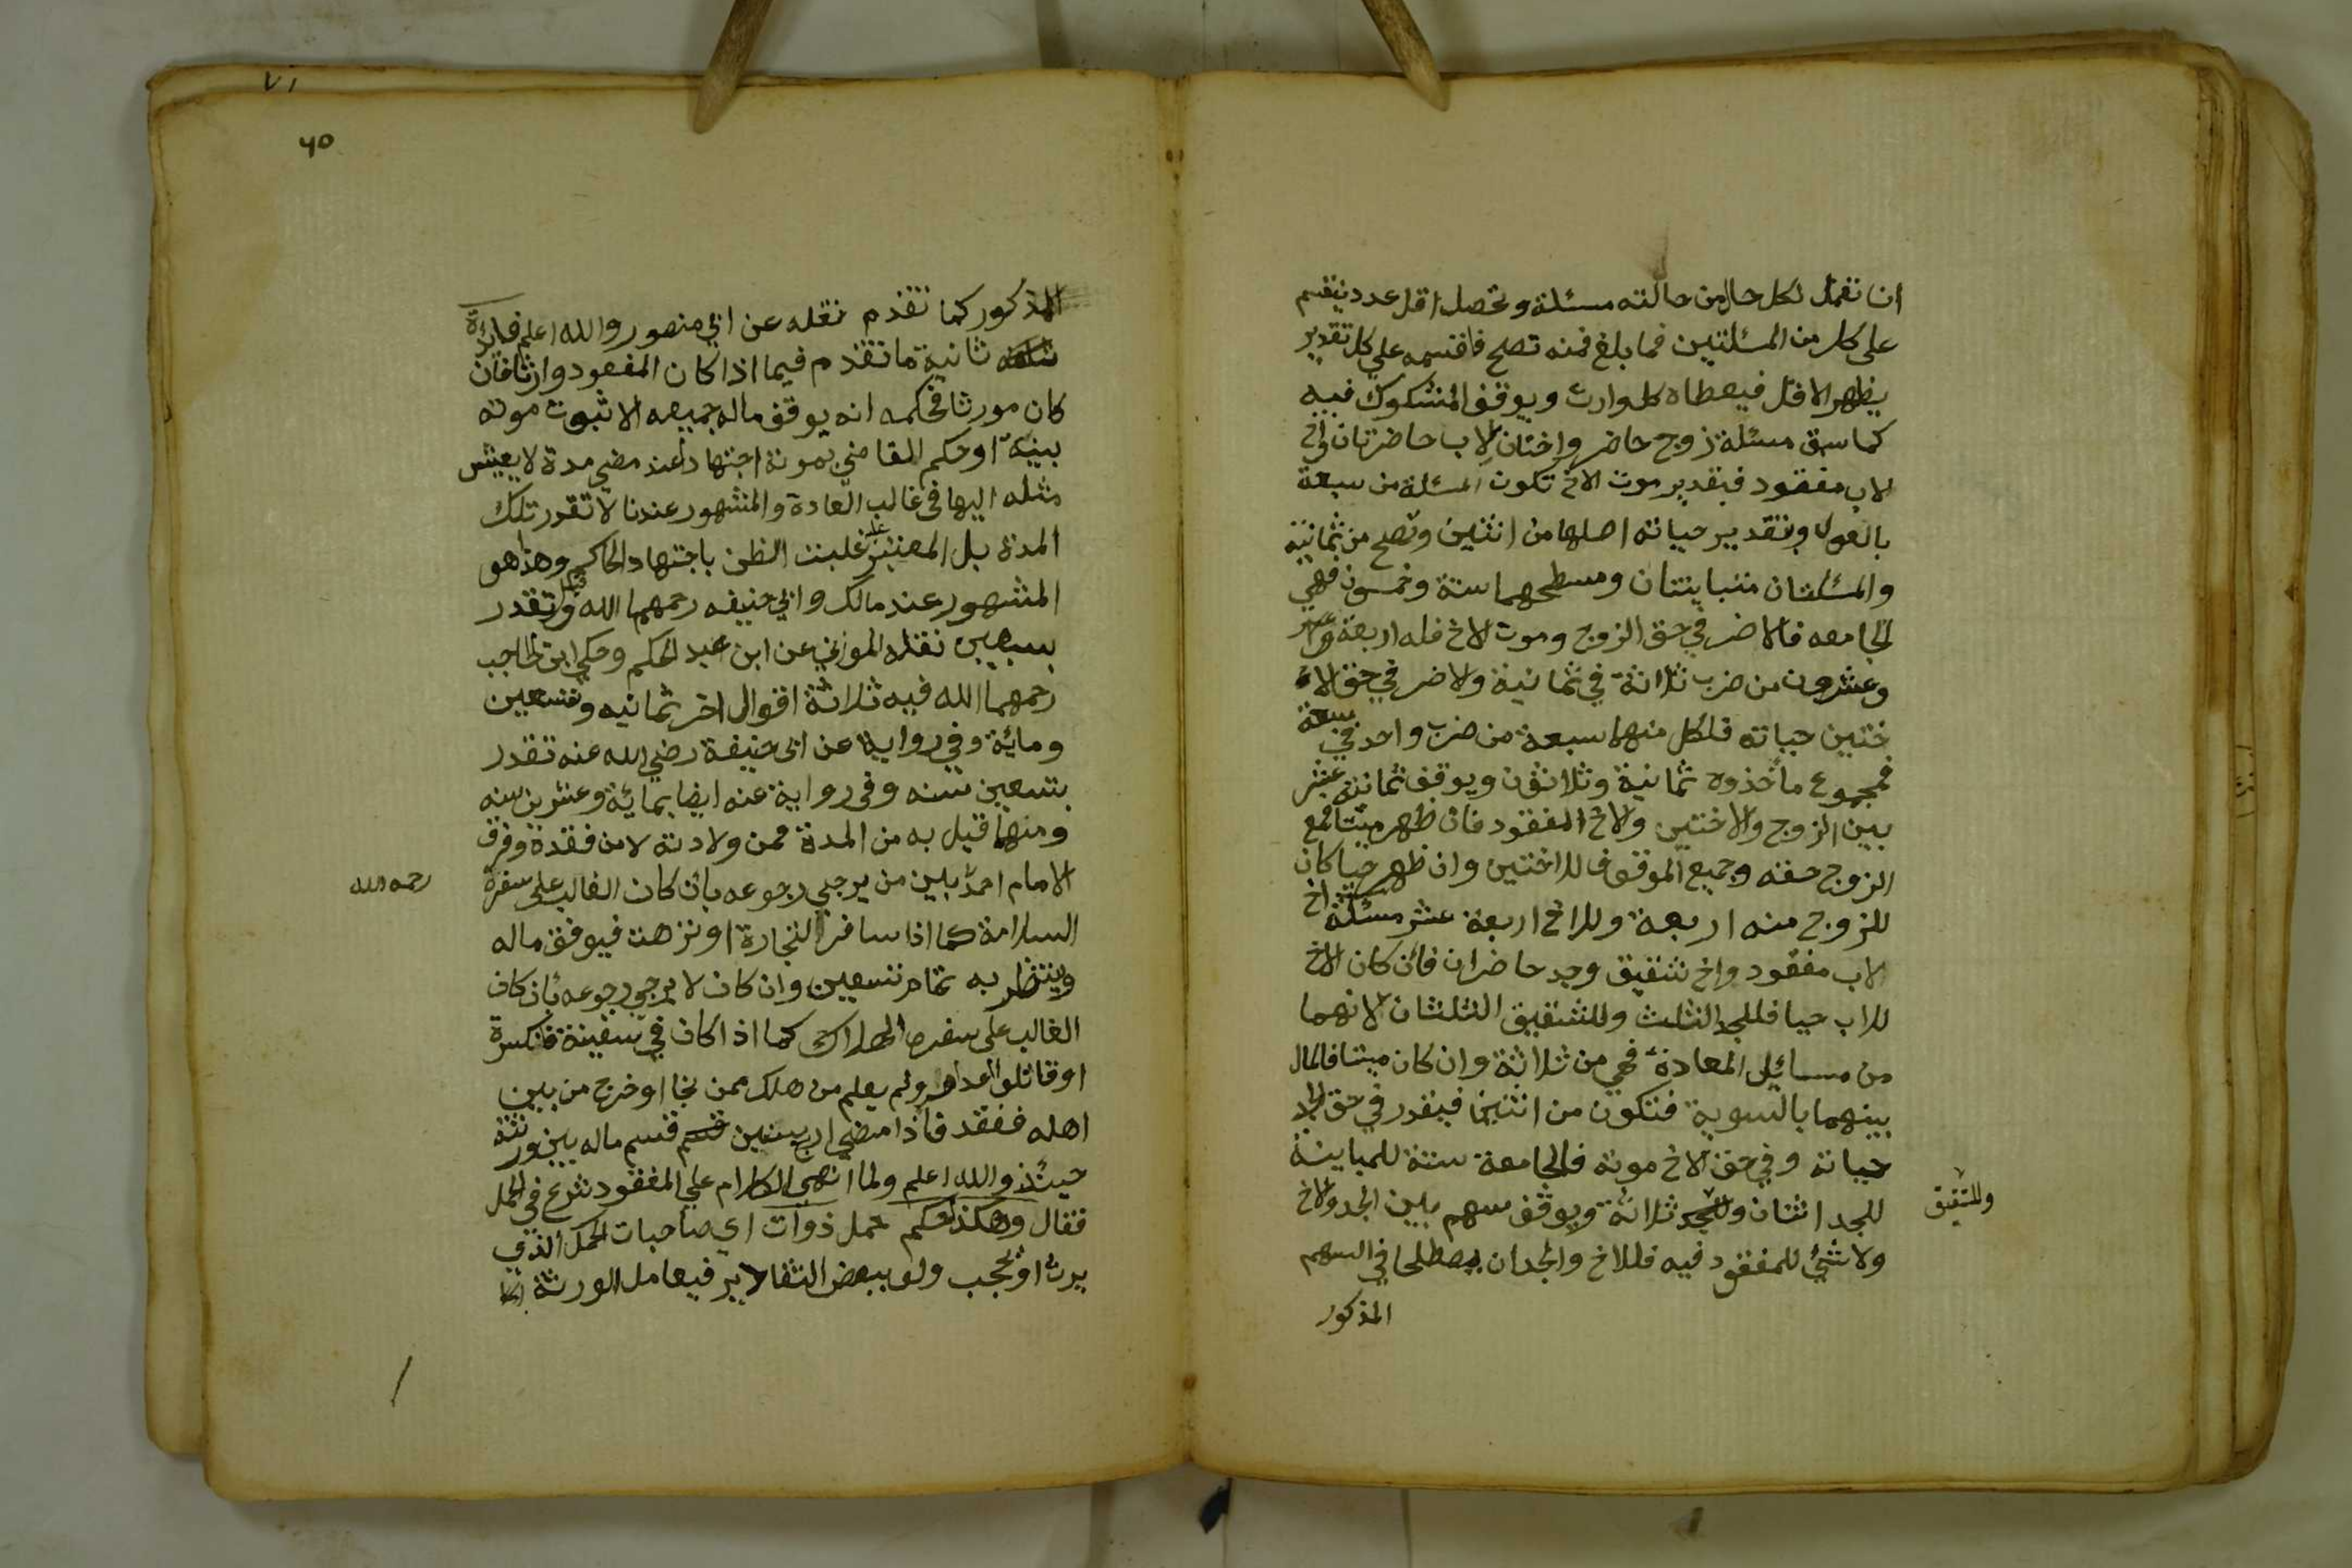 ان تعمل لكل حال من حالته مسئلة وتحصل اقل عدد ينقسم
على كل من المسئلتين فما بلغ فمنه تصلح فاقسمه علي كل تقدير
يظهر الاقل فيعطاه كل وارث ويوقف المشكوك فيه
كما سبق مسئلة زوج حاضر واختان لاب حاضرتان واخ
لاب مفقود فبقدير موت الاخ تكون المسئلة من سبعة
بالعول وبتقدير حياته اصلها من اثنين وتصلح من ثمانية
والمسئلتان متباينتان ومسطحهما ستة وخمسون فهي
الجامعه فالاضر في حق الزوج وموت الاخ فله اربعة
وعشرون من ضرب ثلاثة في ثمانية والاضر في حق الا
ختين حياته فلكل منهما سبعة من ضرب واحد في سبعة
فمجموع ماخذوه ثمانية وثلاثون ويوقف ثمانية عشر
بين الزوج والاختين والاخ المفقود فان ظهر ميتا فمع
الزوج حقه وجميع الموقوف للاختين وان ظهر حيا كان
للزوج منه اربعة وللاخ اربعة عشر مسئلة اخ
لاب مفقود واخ شقيق وجد حاضران فان كان الاخ
للاب حيا فللجد الثلث وللشقيق الثلثان لانهما
من مسائل المعادة فهي من ثلاثة وان كان ميتا فالمال
بينهما بالسوية فتكون من اثنين فيقدر في حق الجد
حياته وفي حق الاخ موته فالجامعة ستة للمباينة
للجد اثنان وللجد ثلاثة ويوقف سهم بين الجد والاخ
وللشقيق
ولا شئ للمفقود فيه فللاخ والجد ان يصطلحا في السهم
المذكور
٧١
٦٥
المذكور كما تقدم نقله عن ابي منصور والله اعلم فائدة
ثانية ما تقدم فيما اذا كان المفقود وارثا فان
كان مورثا فحكمه انه يوقف ماله جميعه الا ثبوت موته
ببينة او حكم القاضي بموته اجتهادا عند مضي مدة لا يعيش
مثله اليها في غالب العادة والمشهور عندنا لا تقدر تلك
المدة بل المعتبر غلبت الظن باجتهاد الحاكم وهذا هو
المشهور عند مالك وابي حنيفه رحمهما الله وقيل تقدر
بسبعين نقله الموزني عن ابن عبد الحكم وحكي ابن الحاجب
رحمهما الله فيه ثلاثة اقوال اخر ثمانيه وتسعين
ومائة وفي رواية عن ابي حنيفة رضي الله عنه تقدر
بتسعين سنه وفي رواية عنه ايضا بمائة وعشرين سنه
ومنهما قيل به من المدة فمن ولادته لا من فقدة وفرق
الامام احمد بين من يرجي رجوعه بان كان الغالب على سفرة
رحمه الله
السلامة كما اذا سافر التجارة او نزهت فيوقف ماله
وينتظر به تمام تسعين وان كان لا يرجي رجوعه بان كان
الغالب على سفره الهلاك كما اذا كان في سفينة فنكسرة
او قاتلو العدو ولم يعلم من هلك ممن نجا او خرج من بين
اهله ففقد فاذا مضي اربع سنين قسم ماله بين ورثته
حينئذ والله اعلم ولما انهي الكلام علي المفقود شرع في الحمل
فقال وهكذا حكم حمل ذوات اي صاحبات الحمل الذي
يرث او يحجب ولو ببعض التقادير فيعامل الورثة